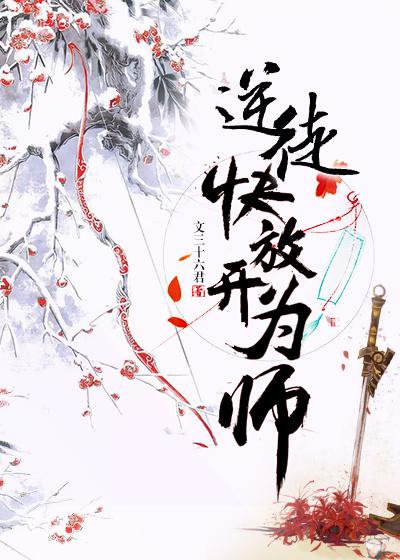 逆徒
快放开为师
文三十六君